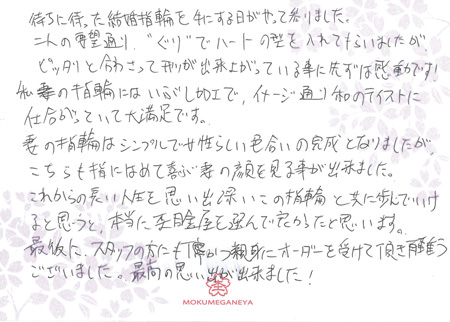 待ちに待った結婚指輪を手にする日がやって参りました。
二人の要望通り、"ぐり"でハートの型を入れてもらいましたが、
ピッタリと合わさって形が出来上がっている事に先ずは感動です!
私の指輪にはいぶし加工で、イメージ通り和のテイストに
仕上がっていて大満足です。
妻の指輪はシンプルで女性らしい色合いの完成となりましたが、
こちらも指にはめて喜ぶ妻の顔を見る事が出来ました。
これからの長い人生を思い出深いこの指輪と共に歩んでいけ
ると思うと、本当に杢目金屋を選んで良かったと思います。
最後に、スタッフの方にも丁寧かつ親身にオーダーを受けて頂き有難う
ございました。最高の思い出が出来ました!
MOKUMEGANEYA